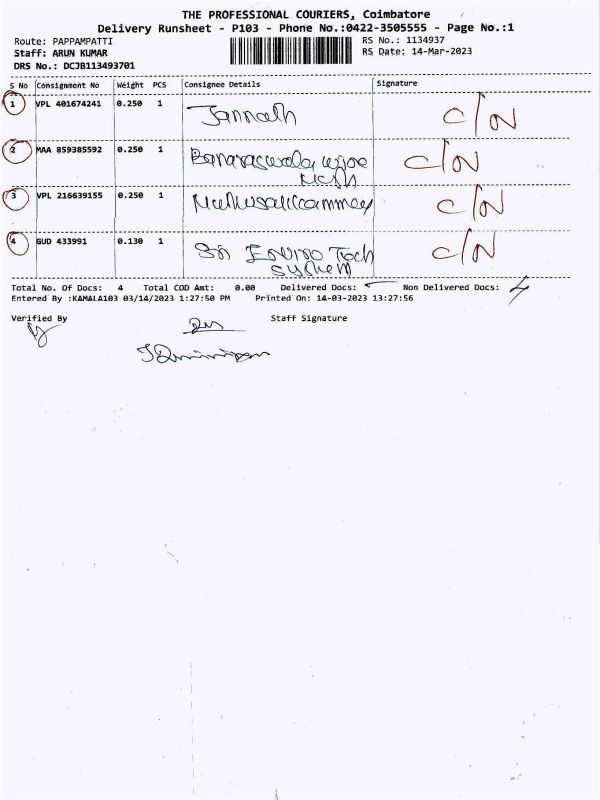 THE PROFESSIONAL COURIERS, Coimbatore
Delivery Runsheet - P103 - Phone No.:0422-3505555 - Page No.:1
Route: PAPPAMPATTI RS No.: 1134937
Staff: ARUN KUMAR RS Date: 14-Mar-2023
DRS No.: DCJB113493701
S No Consignment No Weight PCS Consignee Details Signature
1 VPL 401674241 0.250 1 Jannath C/N
2 MAA 859385592 0.250 1 Banaraswala wire C/N
Mesh
3 VPL 216639155 0.250 1 C/N
4 GUD 433991 0.130 1 Sri Enviro Tech C/N
System
Total No. Of Docs: 4 Total COD Amt: 0.00 Delivered Docs: – Non Delivered Docs: 4
Entered By :KAMALA103 03/14/2023 1:27:50 PM Printed On: 14-03-2023 13:27:56
Verified By Staff Signature